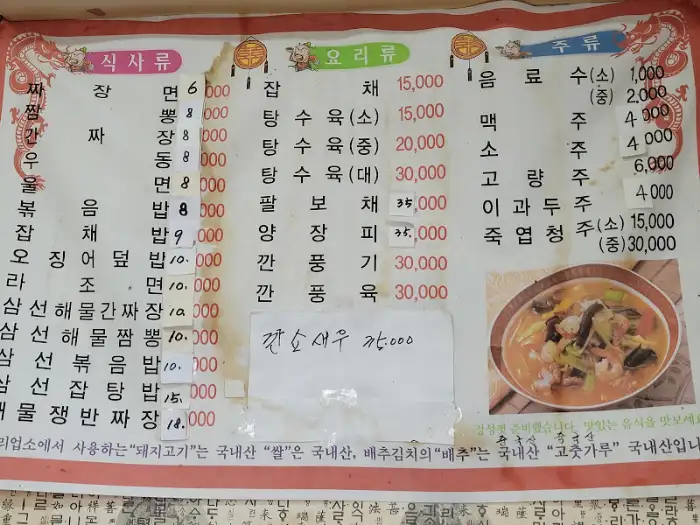 식사류
짜장면 6,000
짬뽕 8,000
간짜장 8,000
우동 8,000
울면 8,000
볶음밥 8,000
잡채밥 9,000
오징어덮밥 10.000
라조면 10.000
삼선해물간짜장 10.000
삼선해물짬뽕 10.000
삼선볶음밥 10.000
삼선잡탕밥 15.000
해물쟁반짜장 18.000
요리류
잡채 15,000
탕수육(소) 15,000
탕수육(중) 20,000
탕수육(대) 30,000
팔보채 35,000
양장피 35,000
깐풍기 30,000
깐풍육 30,000
깐소새우 35,000
주류
음료수(소) 1,000
(중) 2,000
맥주 4,000
소주 4,000
고량주 6,000
이과두주 4000
죽엽청주(소) 15,000
(중) 30,000
정성껏 준비했습니다. 맛있는 음식을 맛보세요
중국산
리업소에서 사용하는 "돼지고기"는 국내산 "쌀"은 국내산, 배추김치의 "배추"는 국내산 "고춧가루" 국내산입니